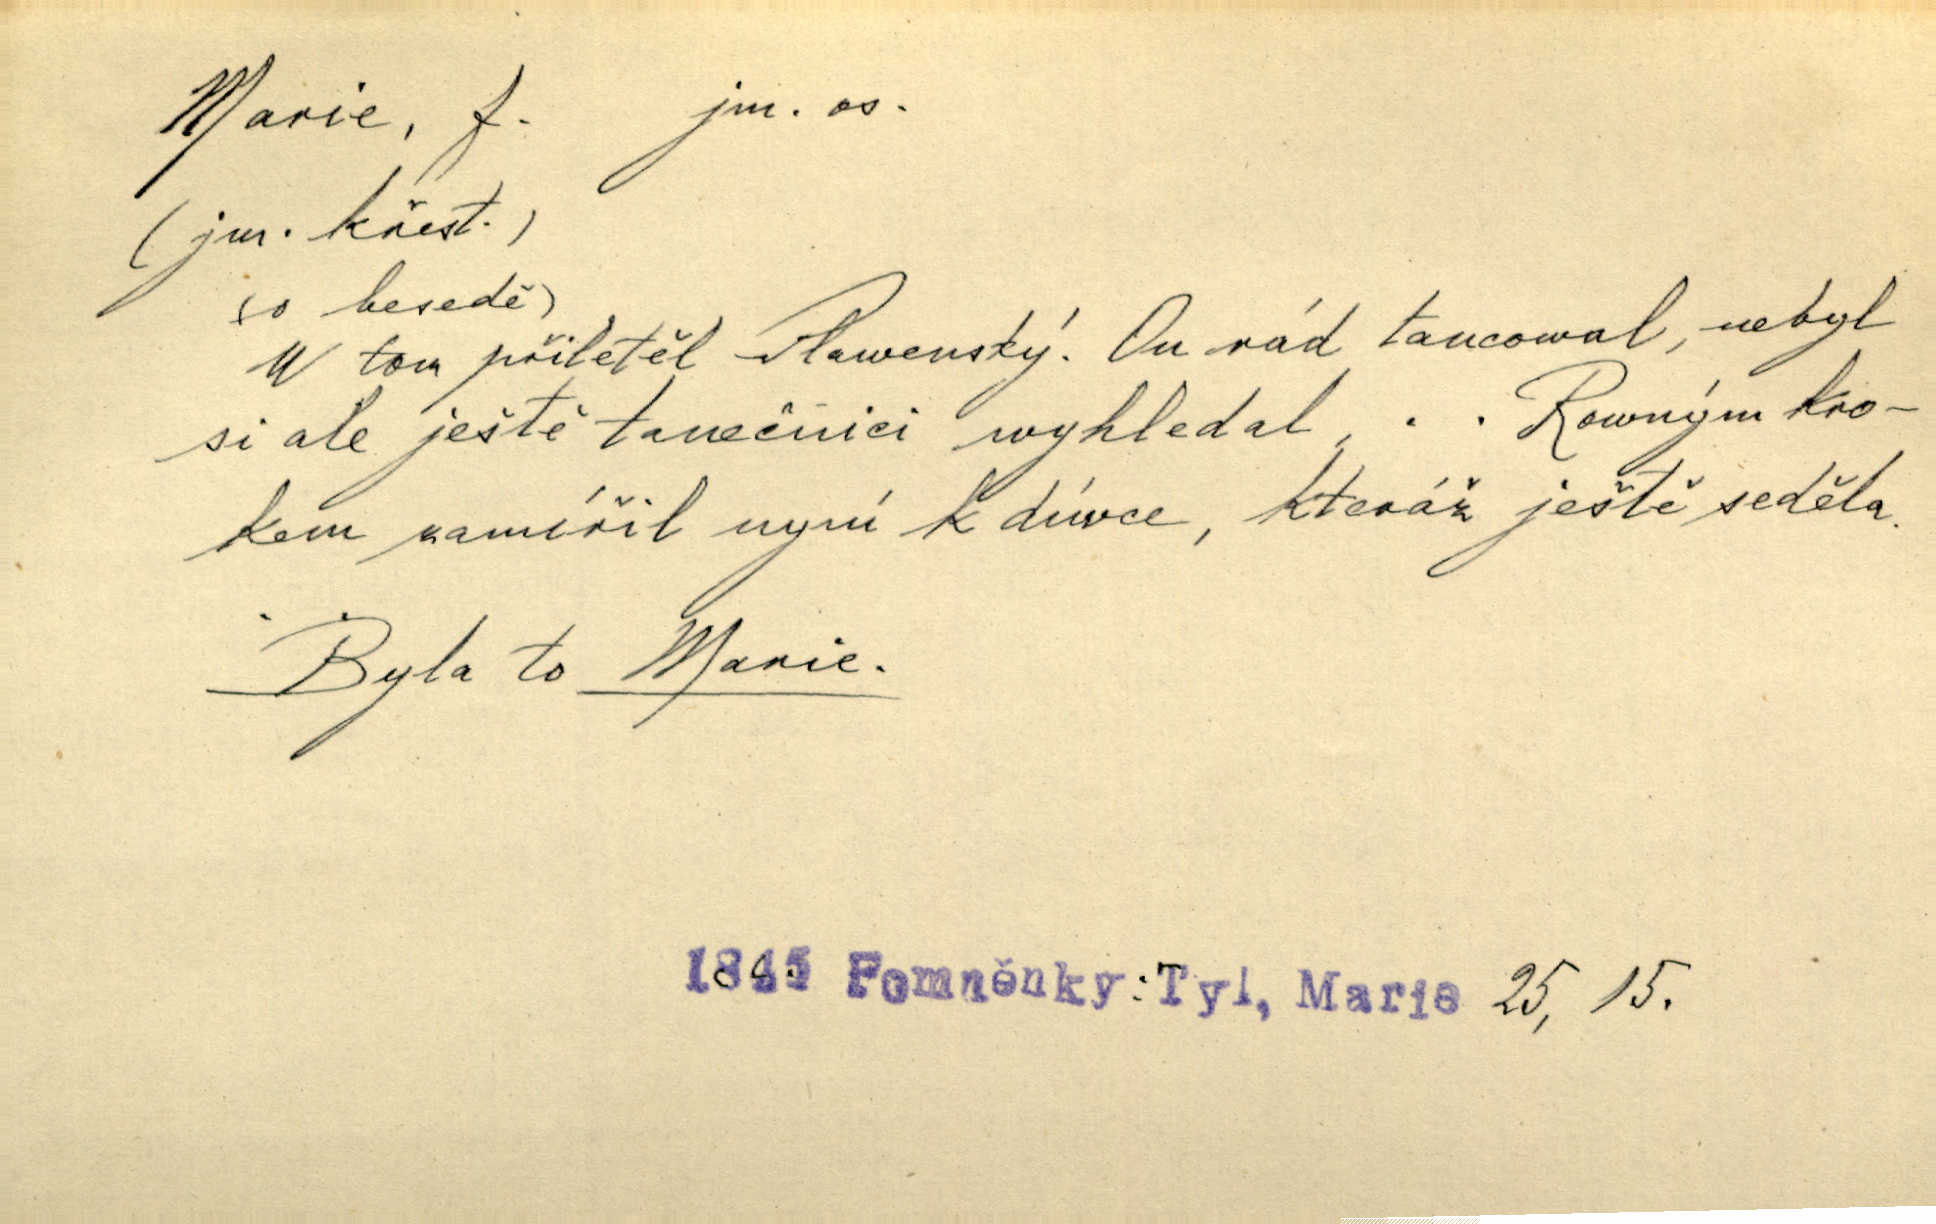 Marie, f. jm. os.
(jm. křest.)
(o besedě)
W tom přiletěl Slawenský. On rád tancowal, nebyl
si ale ještě tanečnici wyhledal, . . Rowným kro-
kem zamířil nyní k dívce, kteráž ještě seděla.
Byla to Marie.
Pomněnky: Tyl, Marie 25, 15.